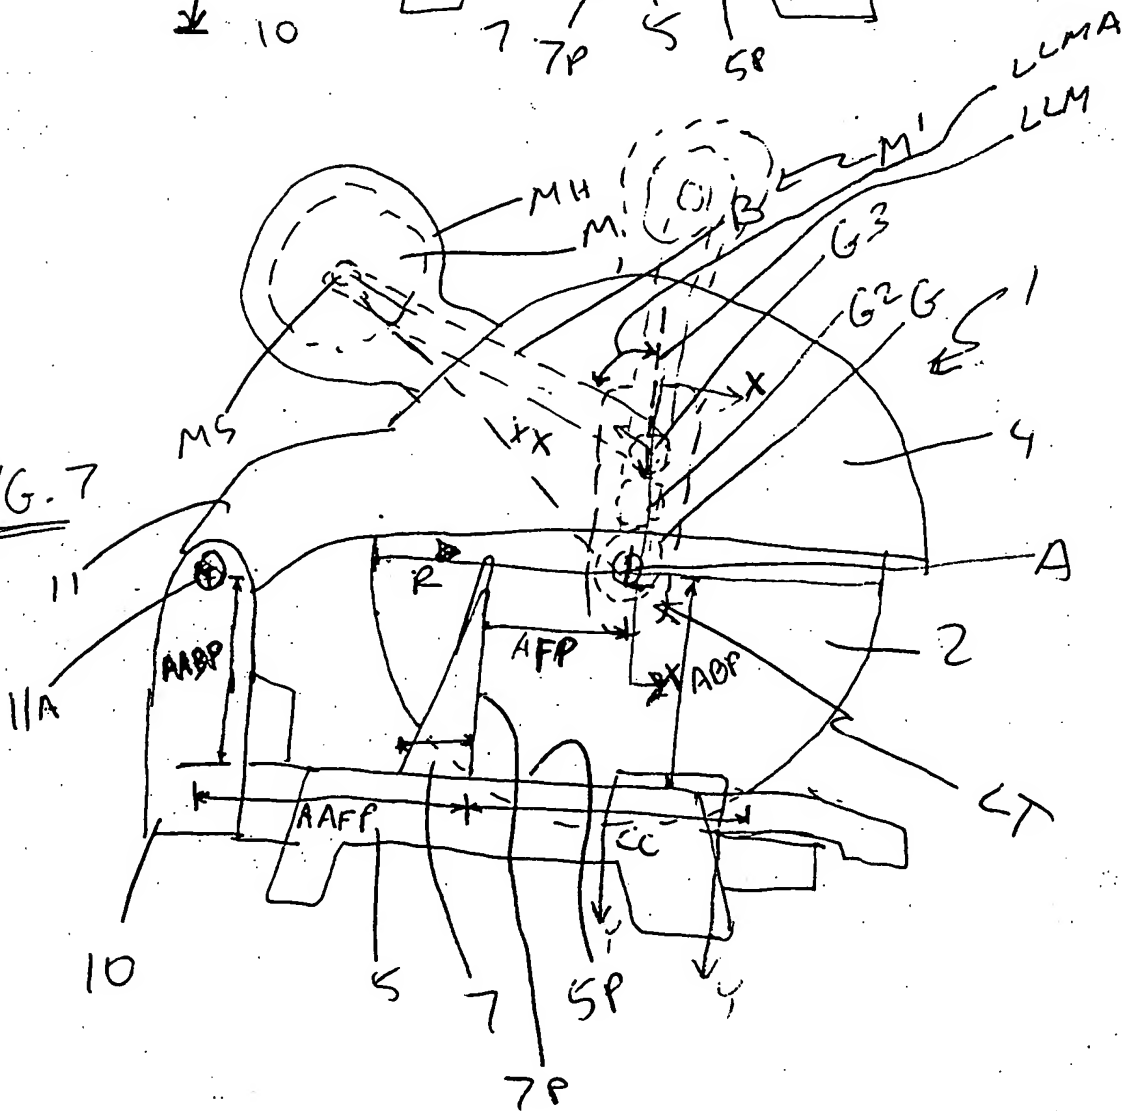 10 7 7P 5 5P
LLMA
LLM
M'
MH
M
B
G3
G2 G
1
X
MS
XX
4
G. 7
11
R
A
AFP
2
AABP
X
ABP
11A
X
AAFP
CC
CT
Y
10
5
7
5P
Y
7P